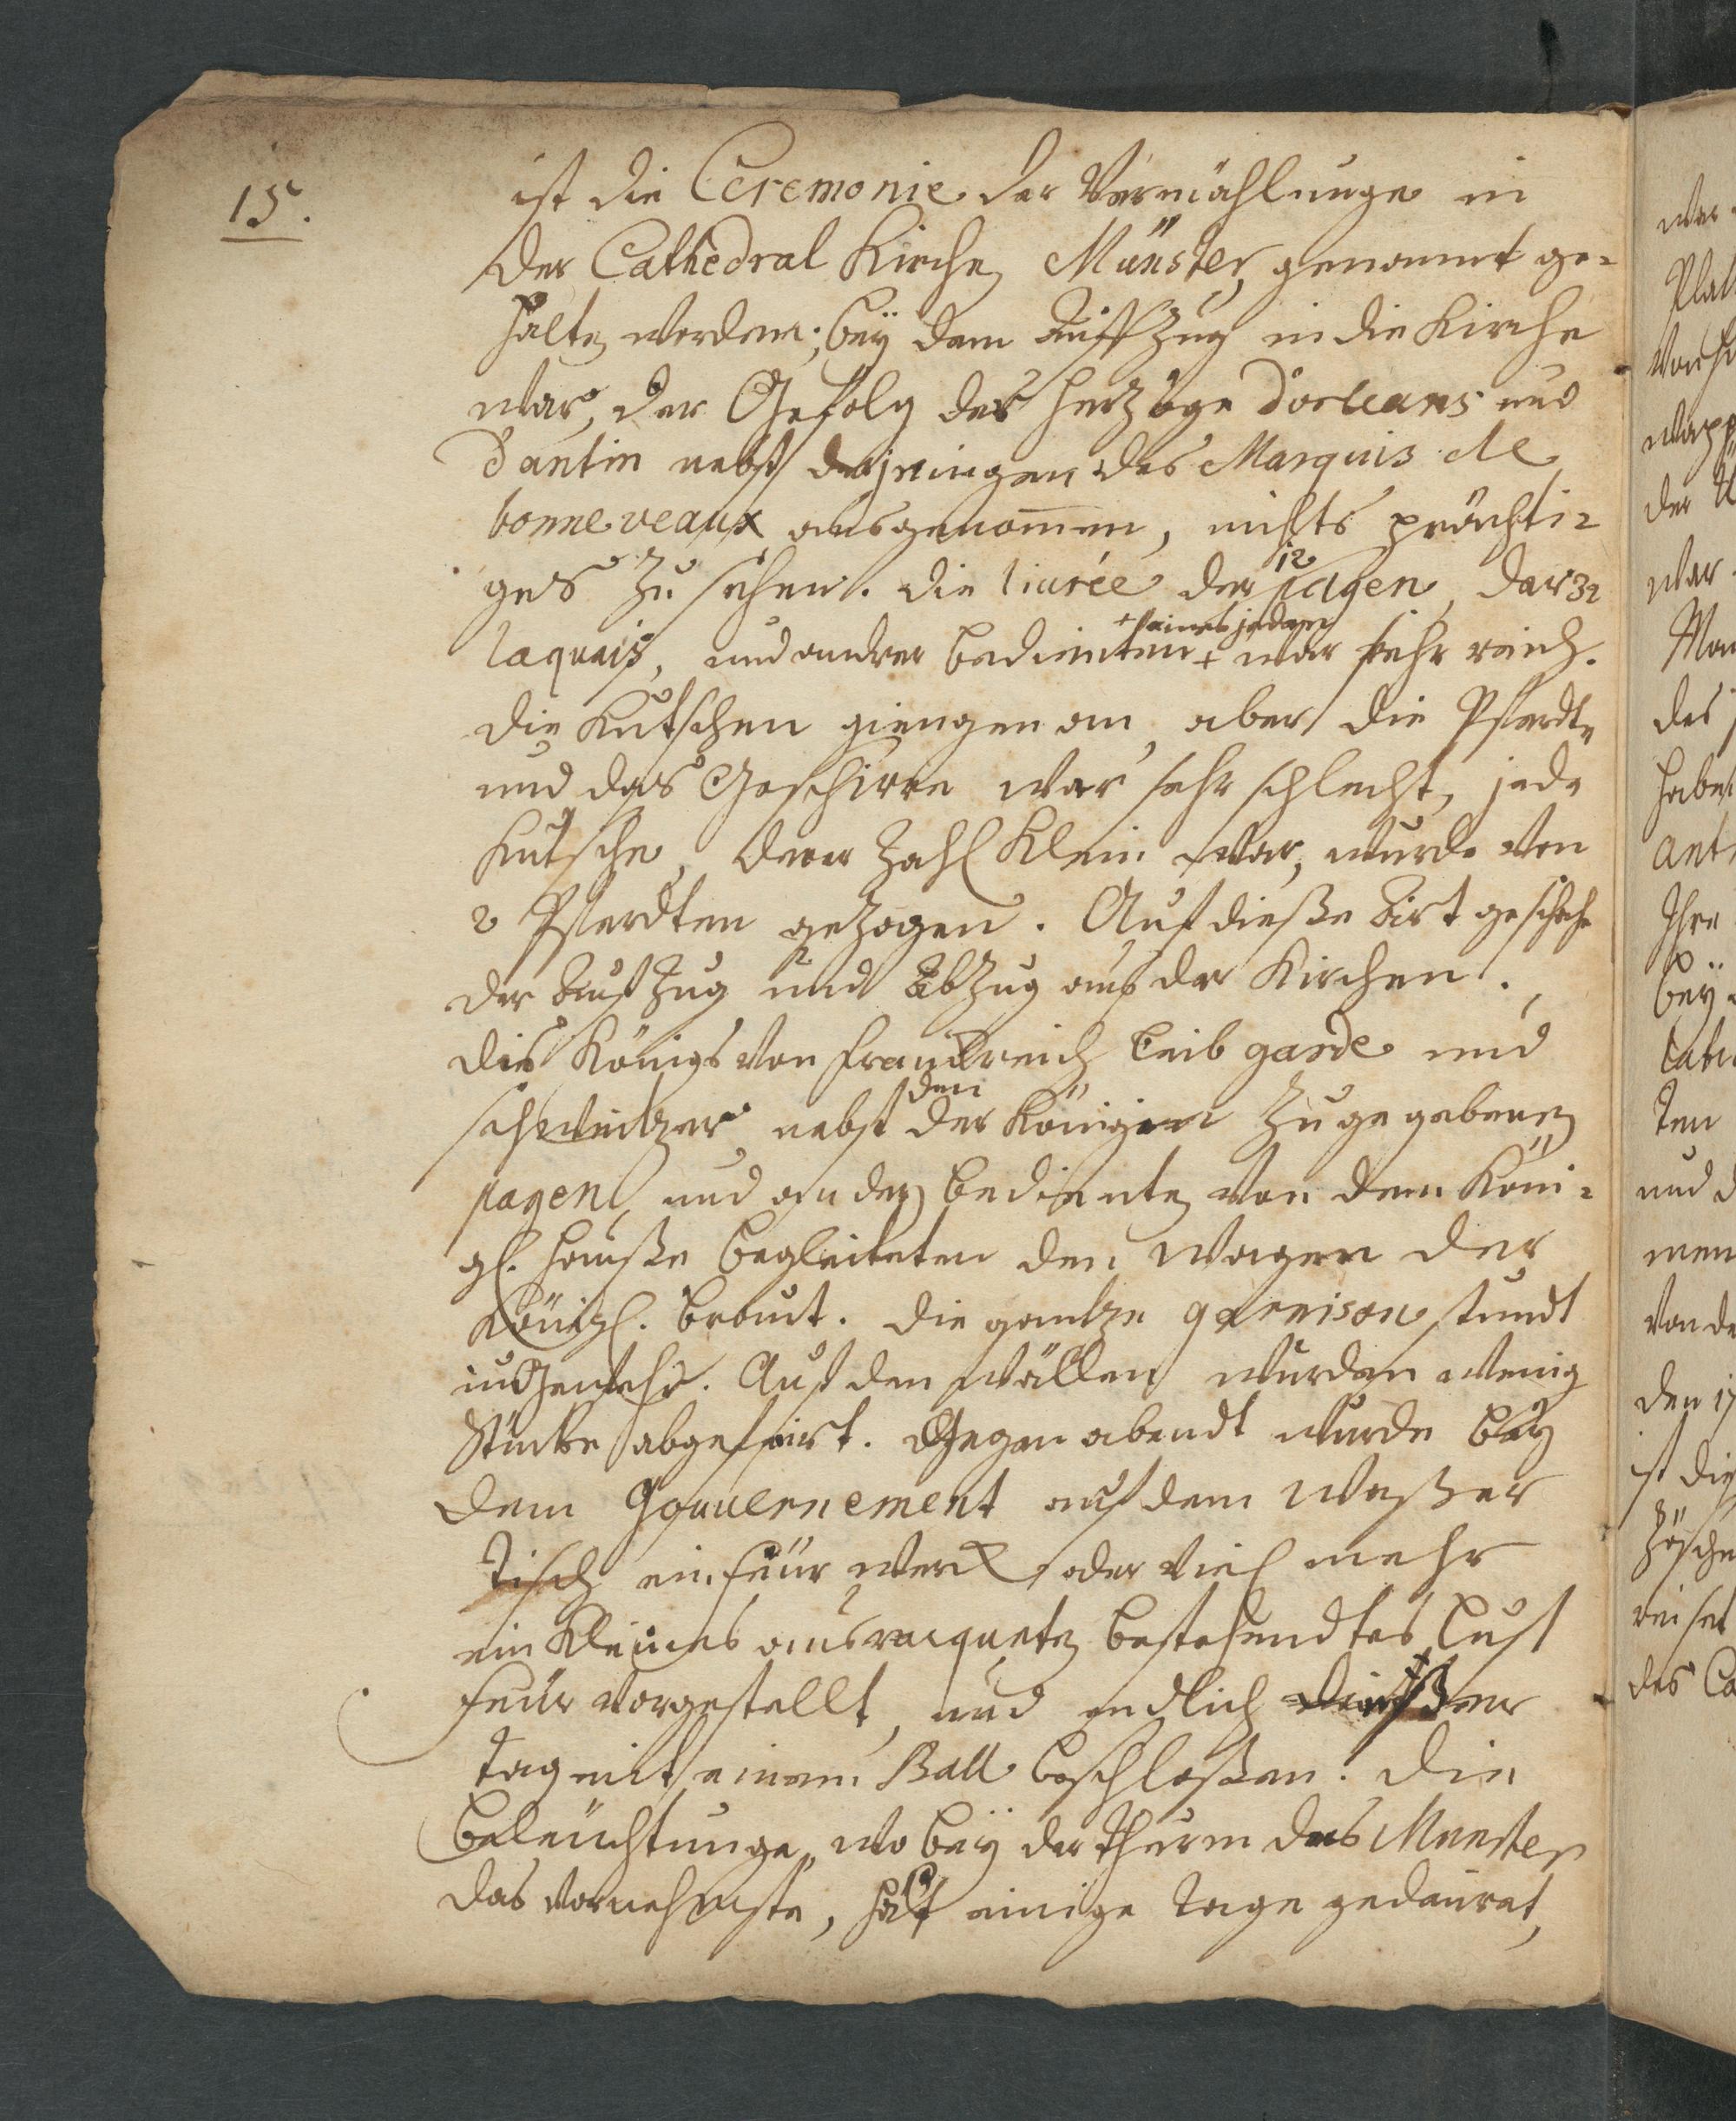 15.
ist die Ceremonie der Vermählunge in
der Cathedral Kirche, Münster, genannt ge-
halten worden; bey dem Auffzug in die Kirche
war, der Gefolg der Hertzoge d'orleans und
d'antin nebst derjenigen des Marquis de
bonneveaux ausgenommen, nichts prächti-
ges zu sehen. die liurée der 12 pagen, der 32
laquais, und andrer bedienten + war sehr reich.
+ eines jeden
die Kutschen giengen an, aber die Pferdte
und das Geschirre war sehr schlecht, jede
Kutsche, derer Zahl klein war, wurde von
2 Pferdten gezogen. Auf dieße Art geschahe
der Aufzug und Abzug aus der Kirchen.
des Königs von Franckreich Leib garde und
schweitzer nebst den der Königin zugegebenen
pagen, und anderen bedienten von dem Köni-
gl. Hauße begleiteten den Wagen der
Königl. Braut. die gantze garnison stundt
im Gewehr. Auf den Wällen wurden wenig
Stücke abgefeürt. Gegen abendt wurde bey
dem Gouvernement auf dem Waßer
ein feür werck oder viel mehr
ein kleines aus racqueten bestehendtes Lust
feür vorgestellt, und endlich dießer
tag mit einem Ball beschloßen. die
beleüchtunge, wo bey der Thurm des Munster
das vornehmste, hat einige Tage gedauret,
war
Plat
von
wapp
der
war
Mon
des
haben
ant
Ihre
bey
ten
und d
men
von de
den 17
ist die
reiset
des Ca